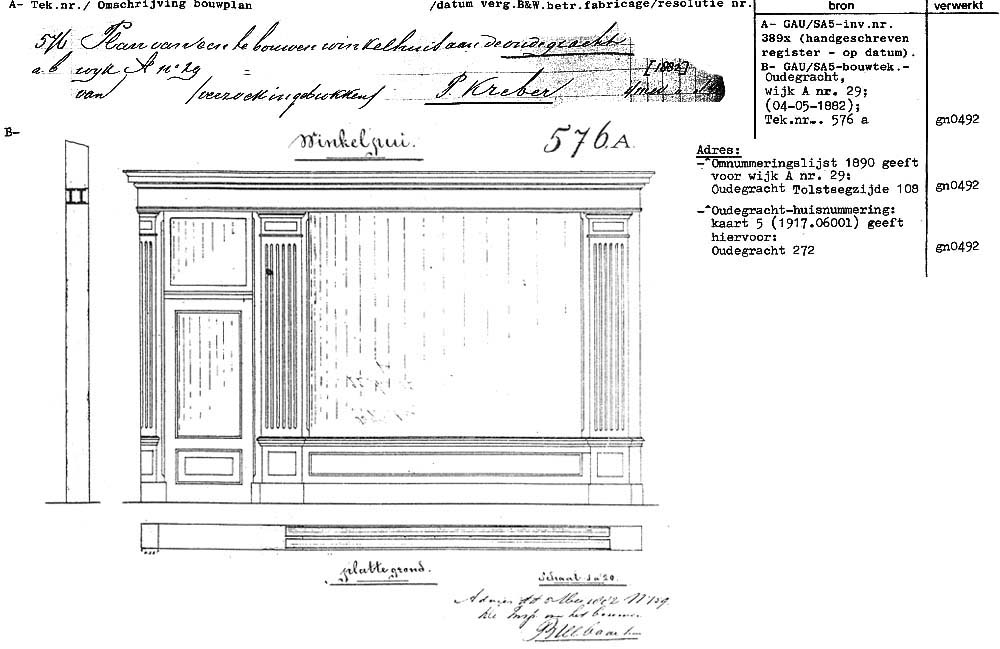 A- Tek.nr./ Omschrijving bouwplan /datum verg.B&W.betr.fabricage/resolutie nr.
bron
verwerkt
576 Plan van een te bouwen winkelhuis aan de oude gracht
a.b wyk A no 29 = [1882]
van (verzoek ingetrokken) P. Kreber
A- GAU/SA5-inv.nr.
389x (handgeschreven
register - op datum).
B- GAU/SA5-bouwtek.-
Oudegracht,
wijk A nr. 29;
(04-05-1882);
Tek.nr.. 576 a
gn0492
B-
Winkelpui.
576.A.
Adres:
-^Omnummeringslijst 1890 geeft
voor wijk A nr. 29:
Oudegracht Tolsteegzijde 108
gn0492
-^Oudegracht-huisnummering:
kaart 5 (1917.06001) geeft
hiervoor:
Oudegracht 272
gn0492
platte grond.
Schaal 1 à 20.
Advies dd 8 Mei 1882 No 159.
De Insp van het bouwen